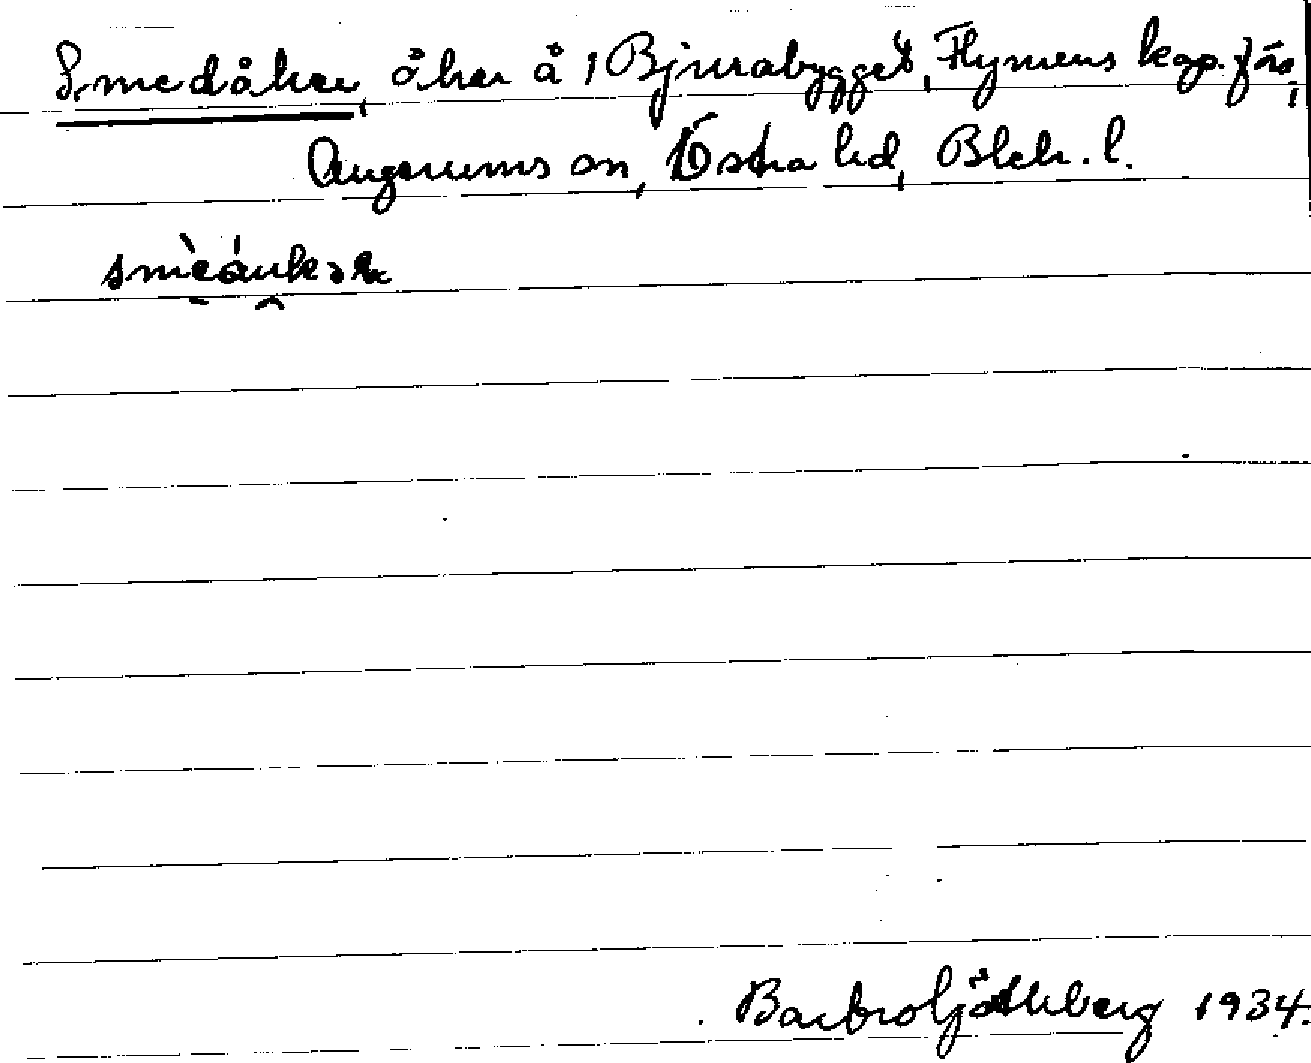 Smedåker, åker å 1 Bjurabygget, Flymens kap.förs,
Augerums sn, Östra hd, Blek. l.
Barbro Götherberg 1934.